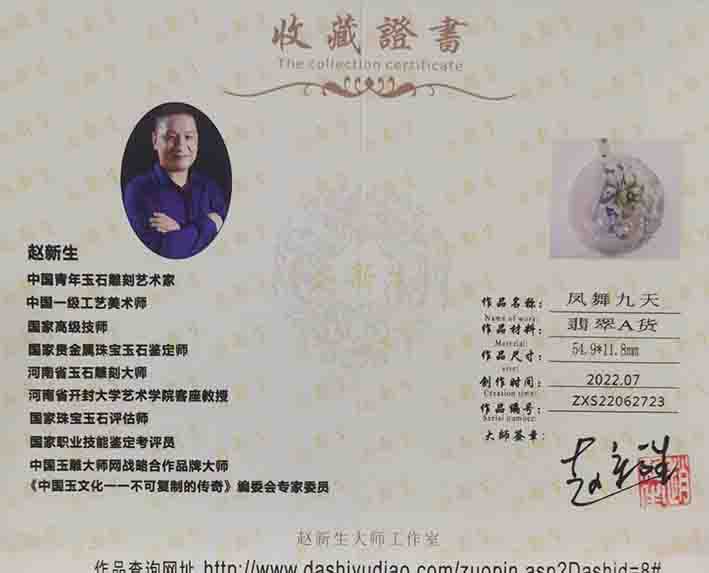 收藏證書
The collection certificate
赵新生
中国青年玉石雕刻艺术家
中国一级工艺美术师
国家高级技师
国家贵金属珠宝玉石鉴定师
河南省玉石雕刻大师
河南省开封大学艺术学院客座教授
国家珠宝玉石评估师
国家职业技能鉴定考评员
中国玉雕大师网战略合作品牌大师
《中国玉文化一一不可复制的传奇》编委会专家委员
作品名称: 凤舞九天
Name of work:
作品材料: 翡翠A货
Material:
作品尺寸: 54.9*11.8mm
size:
创作时间: 2022.07
Creation time:
作品编号: ZXS22062723
Serial number:
大師签章:
赵新生
赵新生大师工作室
作品查询网址 http://www.dashiyudiao.com/zuopin.asp?Dashid=8#